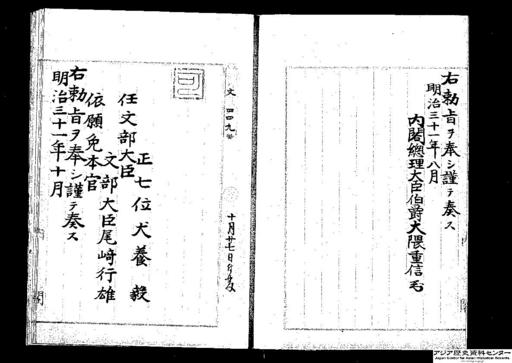 右勅旨ヲ奉シ謹テ奏ス
明治三十一年八月
内閣總理大臣伯爵大隈重信
文 四四九
十月廿七日
正七位犬養毅
任文部大臣
文部大臣尾崎行雄
依願免本官
右勅旨ヲ奉シ謹テ奏ス
明治三十一年十月
内
閣
アジア歴史資料センター
Japan Center for Asian Historical Records